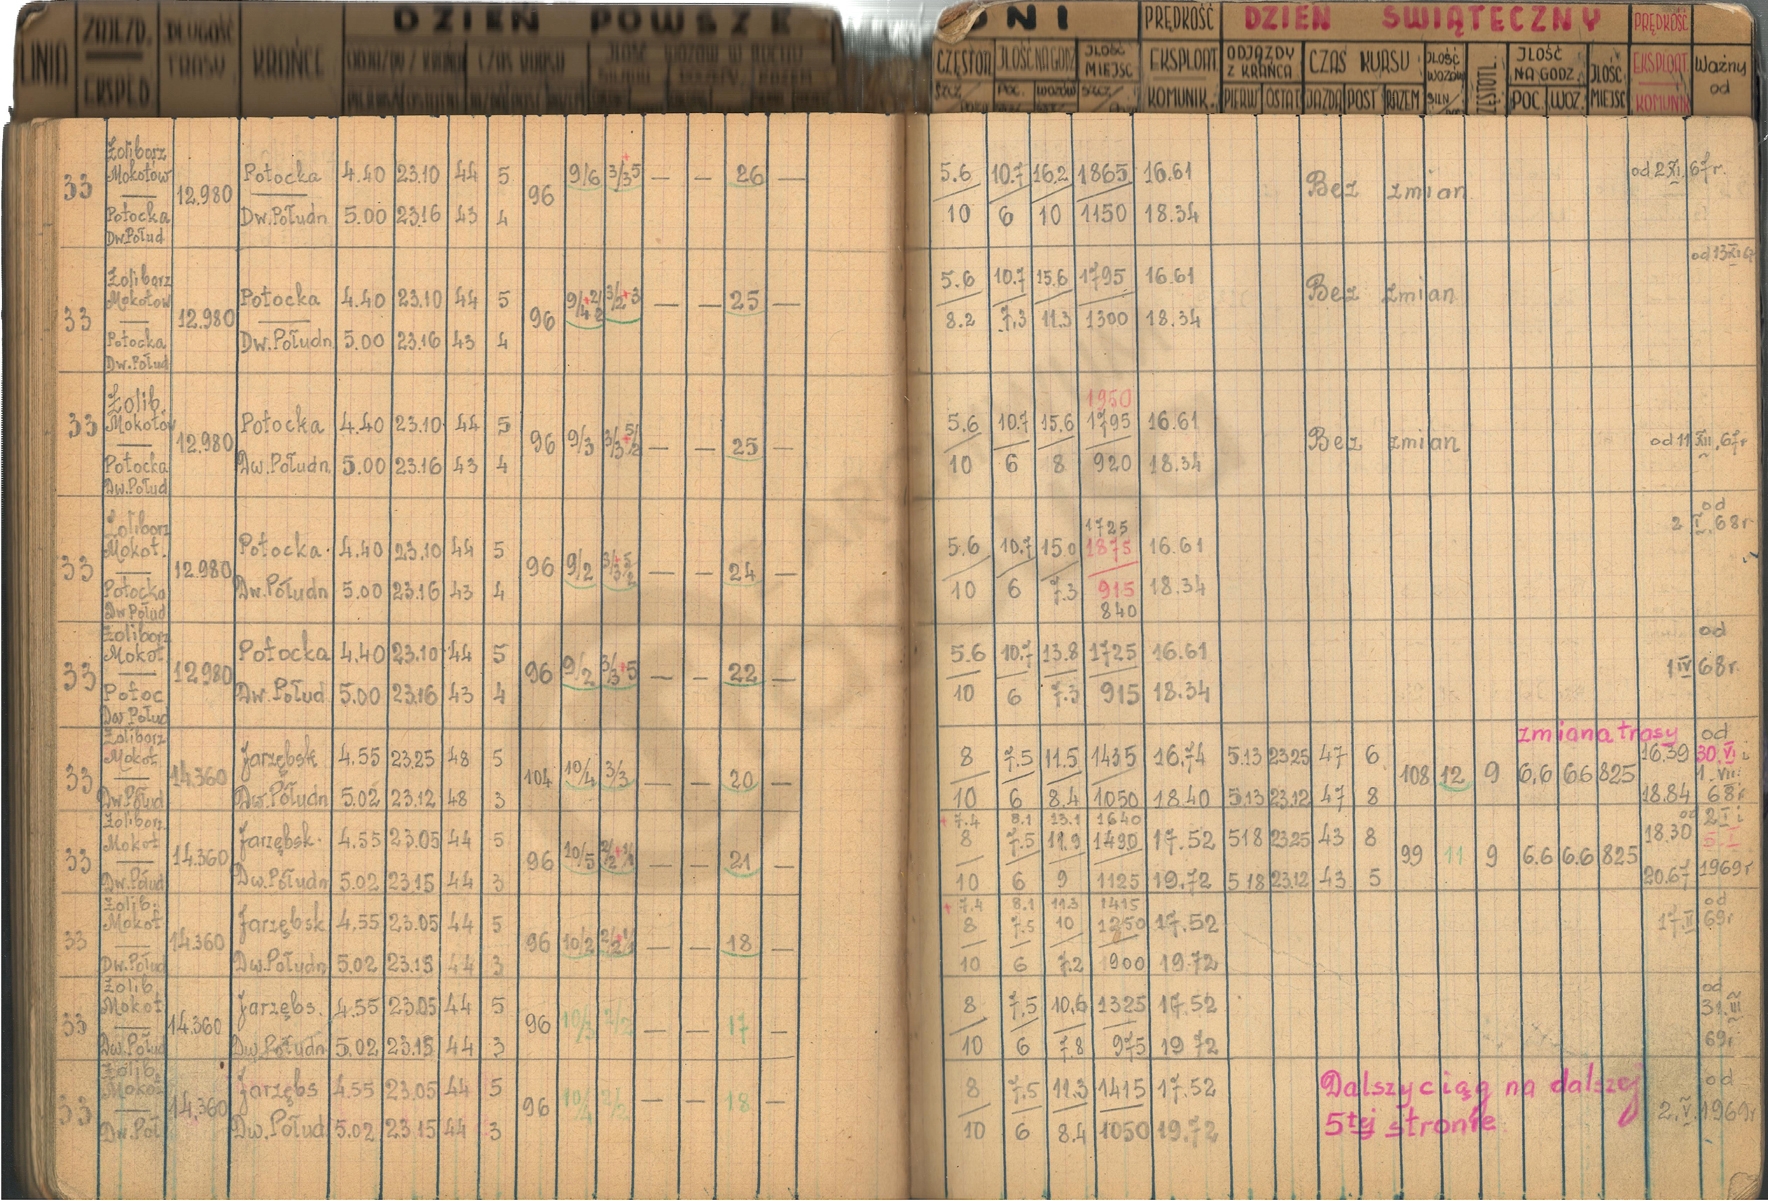 DZIEŃ POWSZE DNI PRĘDKOŚĆ DZIEŃ ŚWIĄTECZNY PRĘDKOŚĆ
LINIA ZAJEZD. EKSPED DŁUGOŚĆ TRASY KRAŃCE ODJAZDY Z KRAŃCA CZAS KURSU ILOŚĆ WOZÓW W RUCHU
CZĘSTOTL ILOŚĆ NA GODZ ILOŚĆ MIEJSC EKSPLOAT KOMUNIK. ODJAZDY Z KRAŃCA CZAS KURSU ILOŚĆ WOZÓW ILOŚĆ NA GODZ ILOŚĆ MIEJSC EKSPLOAT KOMUNIK Ważny od
POC. WOZÓW PIERW OSTAT JAZDA POST RAZEM POC. WOZ.
33 Żoliborz Mokotów 12.980 Potocka 4.40 23.10 44 5 96 9/6 3/3+5 — — 26 — 5.6 10.7 16.2 1865 16.61 Bez zmian od 2 XI 67r.
Potocka Dw.Połud Dw.Połudn 5.00 23.16 43 4 10 6 10 1150 18.34
33 Żoliborz Mokotów 12.980 Potocka 4.40 23.10 44 5 96 — — 25 — 5.6 10.7 15.6 1795 16.61 Bez zmian od 13 XI
Potocka Dw.Połud Dw.Połudn 5.00 23.16 43 4 8.2 7.3 11.3 1300 18.34
1950
33 Żolib. Mokotów 12.980 Potocka 4.40 23.10 44 5 96 9/3 — — 25 — 5.6 10.7 15.6 1795 16.61 Bez zmian od 11 XII 67r
Potocka Dw.Połud Dw.Połudn 5.00 23.16 43 4 10 6 8 920 18.34
1725
33 Żoliborz Mokot. 12.980 Potocka 4.40 23.10 44 5 96 9/2 — — 24 — 5.6 10.7 15.0 1875 16.61 od 2 I 68r
Potocka Dw Połud Dw.Połudn 5.00 23.16 43 4 10 6 7.3 915 18.34
840
33 Żoliborz Mokot 12.980 Potocka 4.40 23.10 44 5 96 9/2 3/3+5 — — 22 — 5.6 10.7 13.8 1725 16.61 od 1 IV 68r.
Potoc Dw Połud Dw.Połud 5.00 23.16 43 4 10 6 7.3 915 18.34
zmiana trasy
33 Żoliborz Mokot 14.360 Jarzębsk 4.55 23.25 48 5 104 10/4 3/3 — — 20 — 8 7.5 11.5 1435 16.74 5.13 23.25 47 6 108 12 9 6,6 6.6 825 16.39 od 30.VI i 1.VII.
Dw.Połud Dw.Połudn 5.02 23.12 48 3 10 6 8.4 1050 18.40 5.13 23.12 47 8 18.84 68r
+ 7.4 8.1 13.1 1640
33 Żoliborz. Mokot 14.360 Jarzębsk. 4.55 23.05 44 5 96 10/5 — — 21 — 8 7.5 11.9 1490 17.52 518 23.25 43 8 99 11 9 6.6 6.6 825 18.30 od 2 I i
Dw.Połud Dw.Połudn 5.02 23.15 44 3 10 6 9 1125 19.72 5 18 23.12 43 5 20.67 1969r
+ 7.4 8.1 11.3 1415
33 Żolib. Mokot 14.360 Jarzębsk 4.55 23.05 44 5 96 10/2 — — 18 — 8 7.5 10 1250 17.52 od 17.II 69r
Dw.Połud Dw.Połudn 5.02 23.15 44 3 10 6 7.2 900 19.72
33 Żolib. Mokot 14.360 Jarzębs. 4.55 23.05 44 5 96 10/3 2/2 — — 17 — 8 7.5 10,6 1325 17.52 od 31.III
Dw.Połud Dw.Połudn 5.02 23.15 44 3 10 6 7.8 975 19 72 69r
33 Żolib. Mokot 14.360 Jarzębs 4.55 23.05 44 5 96 10/4 2/2 — — 18 — 8 7.5 11.3 1415 17.52 Dalszy ciąg na dalszej od
Dw.Poł Dw.Połud 5.02 23.15 44 3 10 6 8.4 1050 19.72 5tej stronie 2.V.1969r